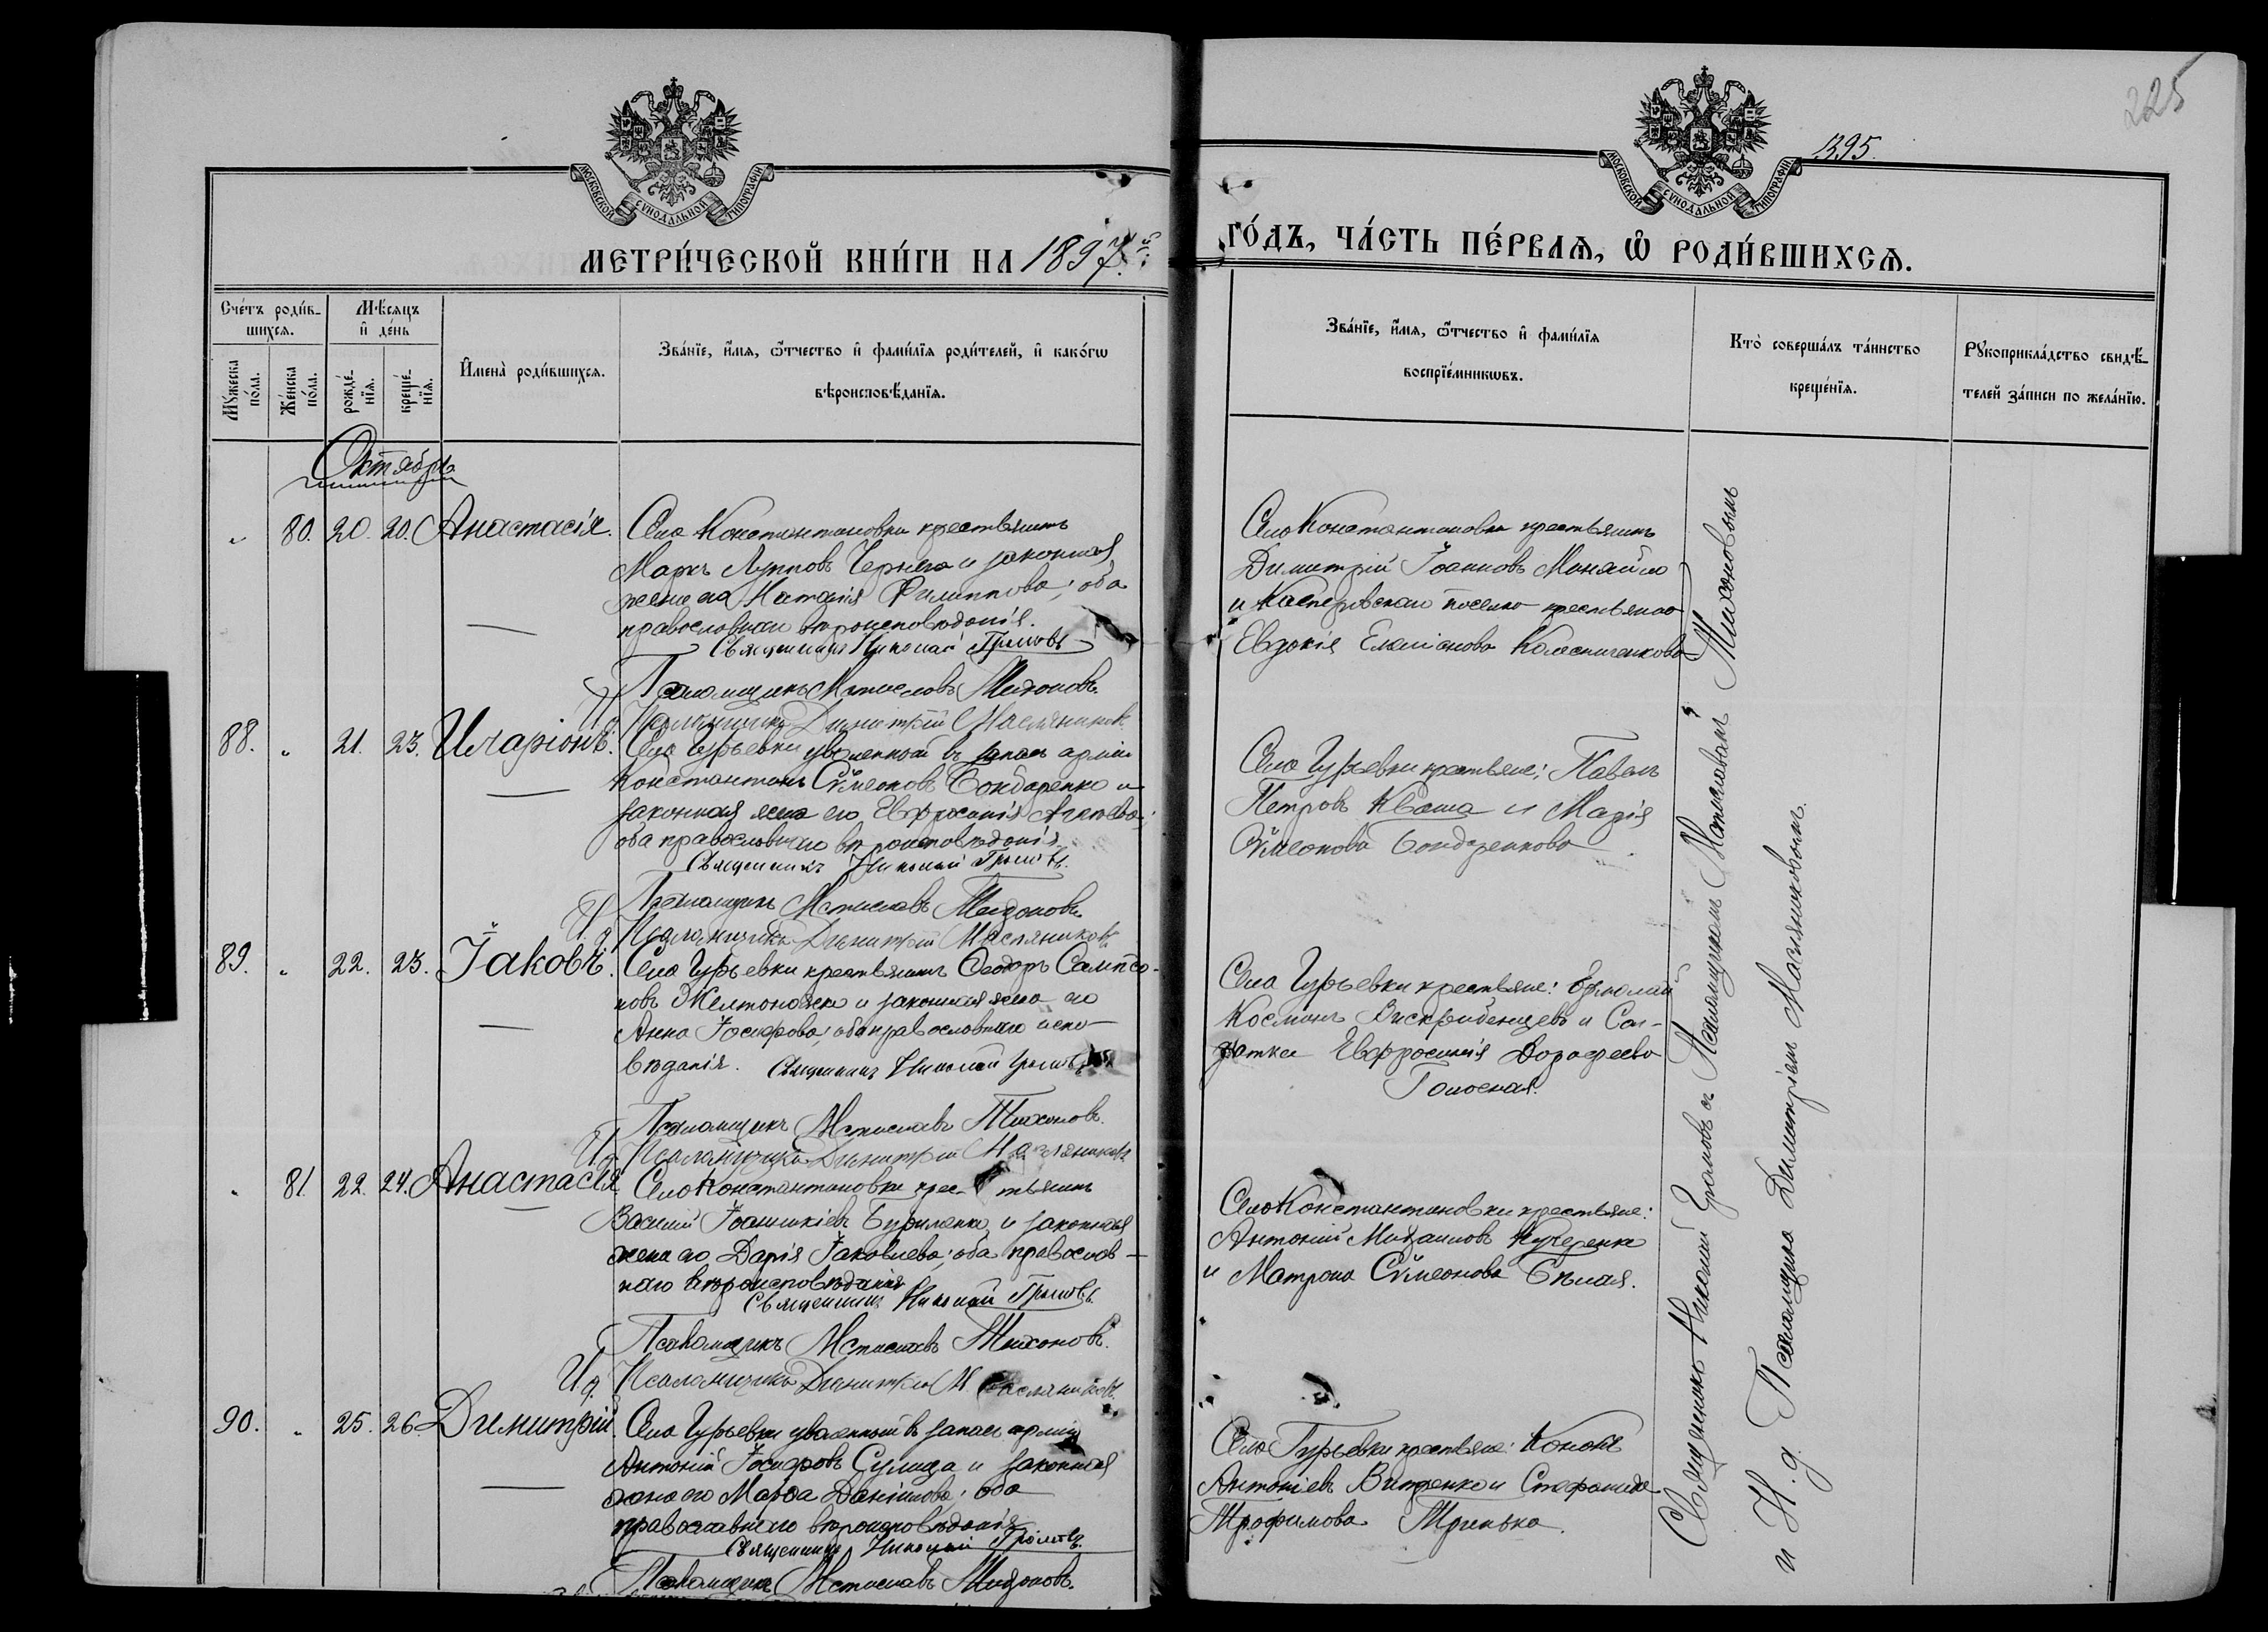 225
395.
МОСКОВСКОЙ СѴНОДАЛЬНОЙ ТИПОГРАФІИ
МОСКОВСКОЙ СѴНОДАЛЬНОЙ ТИПОГРАФІИ
МЕТРИ́ЧЕСКОЙ КНИ́ГИ НА 1897
ГО́ДЪ, ЧА́СТЬ ПЕ́РВАѦ, Ѡ҆ РОДИ́ВШИХСѦ.
Сче́тъ роди́в-
шихся.
Мꙋ́жеска по́ла.
Же́нска по́ла.
Мѣ́сяцъ
и҆ де́нь
рожде́-
нїя.
креще́-
нїя.
И҆мена̀ роди́вшихся.
Зва́нїе, и҆́мя, ѻ҆́тчество и҆ фами́лїя роди́телей, и҆ како́гѡ
вѣроисповѣ́данїя.
Зва́нїе, и҆́мя, ѻ҆́тчество и҆ фами́лїя
воспрїе́мникѡвъ.
Кто̀ соверша́лъ та́инство
креще́нїя.
Рꙋкоприкла́дство свидѣ́-
телей за́писи по жела́нїю.
Октябрь
80. 20. 20. Анастасія.
Села Константиновки крестьянинъ
Маркъ Лупповъ Чернега и законная
жена его Наталія Филиппова; оба
православнаго вѣроисповѣданія.
Священникъ Николай Громовъ
Псаломщикъ Мстиславъ Тихоновъ.
И. д. Псаломщика Димитрій Масляниковъ
Села Константиновки крестьянинъ
Димитрій Іоанновъ Манайло
и Касперовскаго поселка крестьянка
Евдокія Емиліанова Колесниченкова
88. 21. 23. Иларіонъ.
Села Гурьевки уволенный въ запасъ арміи
Константинъ Сѵмеоновъ Бондаренко и
законная жена его Евфросинія Агеева;
оба православнаго вѣроисповѣданія.
Священникъ Николай Громовъ.
Псаломщикъ Мстиславъ Тихоновъ.
И. д. Псаломщика Димитрій Масляниковъ
Села Гурьевки крестьяне: Павелъ
Петровъ Кваша и Марія
Сѵмеонова Бондаренкова.
89. 22. 23. Іаковъ.
Села Гурьевки крестьянинъ Ѳеодоръ Сампсо-
новъ Желтоножко и законная жена его
Анна Іосифова; оба православнаго испо-
вѣданія. Священникъ Николай Громовъ
Псаломщикъ Мстиславъ Тихоновъ.
И. д. Псаломщика Димитрій Масляниковъ
Села Гурьевки крестьяне: Ермолай
Косминъ Вискребенцевъ и Сол-
датка Евфросинія Дорофеева
Голосная.
81. 22. 24. Анастасія
Села Константиновки крестьянинъ
Василій Іоанникіевъ Буриленко и законная
жена его Дарія Іаковлева; оба православ-
наго вѣроисповѣданія
Священникъ Николай Громовъ.
Псаломщикъ Мстиславъ Тихоновъ.
И. д. Псаломщика Димитрій Масляниковъ.
Села Константиновки крестьяне:
Антоній Михаиловъ Кучеренко
и Матрона Сѵмеонова Бѣлая.
90. 25. 26. Димитрій.
Села Гурьевки уволенный въ запасъ арміи
Антоній Іосифовъ Сулица и законная
жена его Марѳа Даніилова; оба
православнаго вѣроисповѣданія
Священникъ Николай Громовъ.
Псаломщикъ Мстиславъ Тихоновъ.
Села Гурьевки крестьяне: Кононъ
Антоніевъ Витренко и Стефанида
Трофимова Тринько.
Священникъ Николай Громовъ съ Псаломщикомъ Мстиславомъ Тихоновымъ
и И. д. Псаломщика Димитріемъ Масляниковымъ.